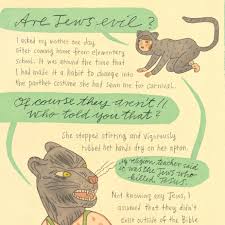 Are Jews evil?
I asked my mother one day,
after coming home from elementary
school. It was around the time that
I had made it a habit to change into
the panther costume she had sewn me for carnival.
Of course they aren't!!
Who told you that?
She stopped stirring and vigorously
rubbed her hands dry on her apron.
My religion teacher said
it was the Jews who
killed JESUS.
Not knowing any Jews, I
assumed that they didn't
exist outside of the Bible